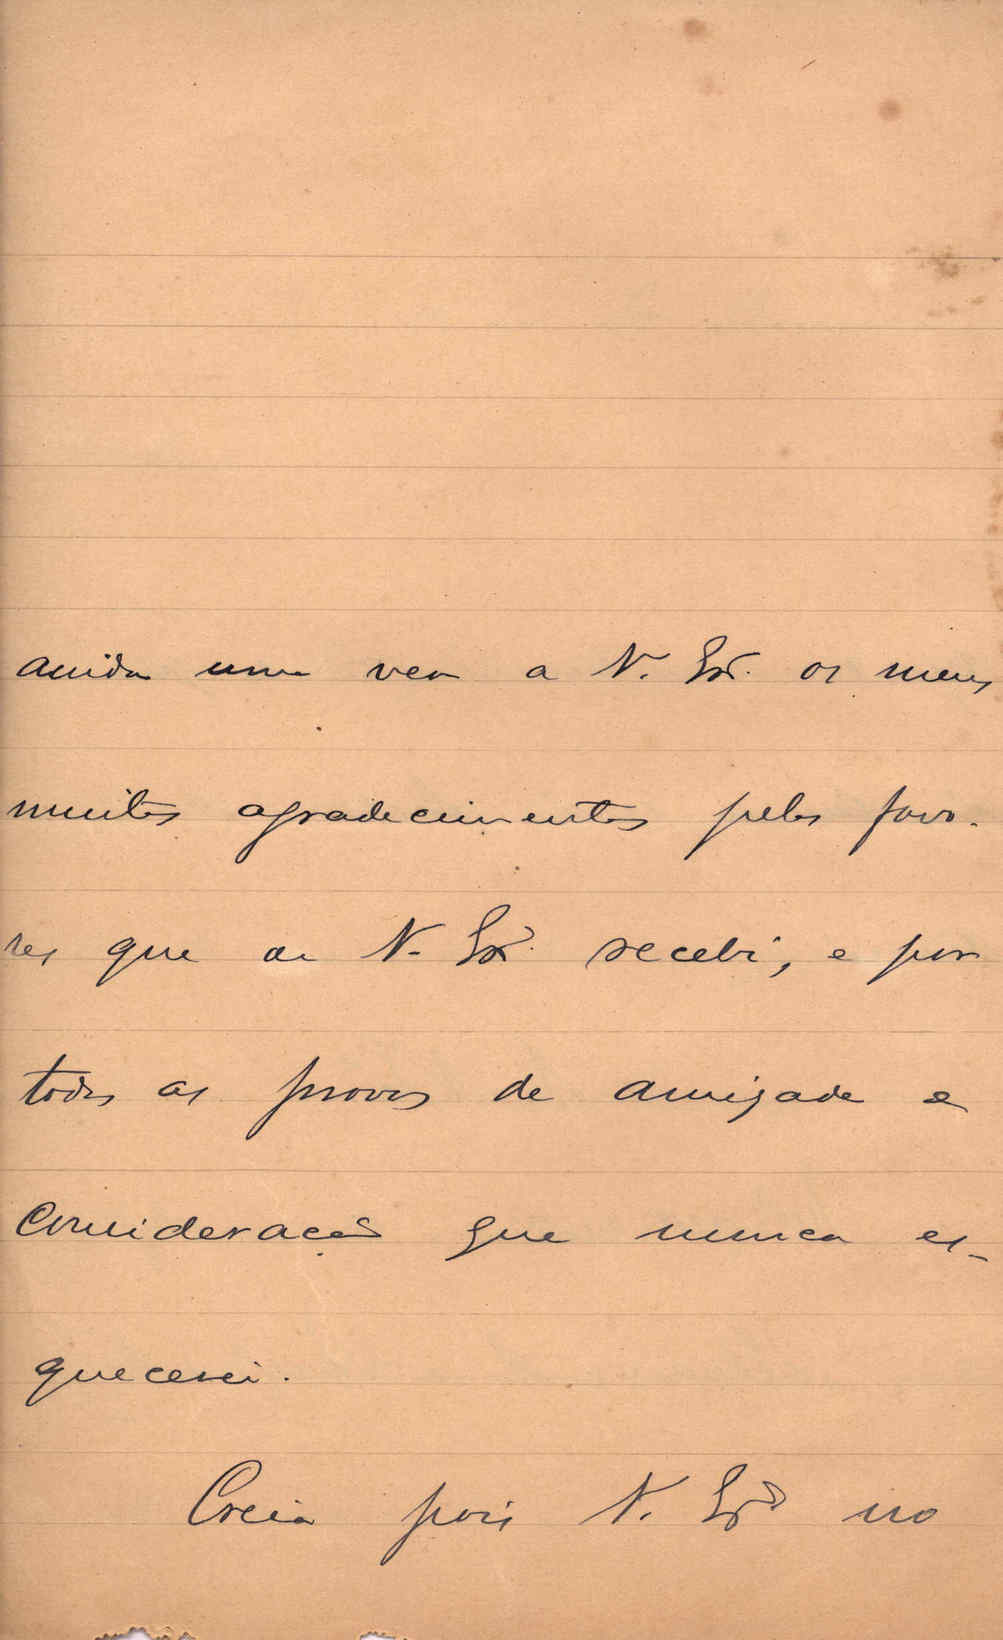 ainda uma vez a V. Exª. os meus
muitos agradecimentos pelos favo-
res que de V. Exª. recebi, e por
todas as provas de amizade e
consideração que nunca es-
quecerei.
Creia pois V. Exª no